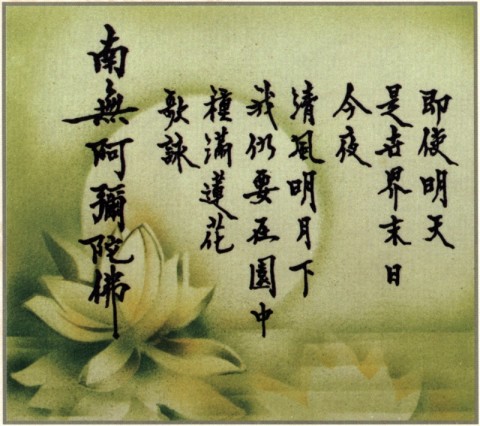 即使明天
是世界末日
今夜
清風明月下
我仍要在園中
種滿蓮花
歌詠
南無阿彌陀佛